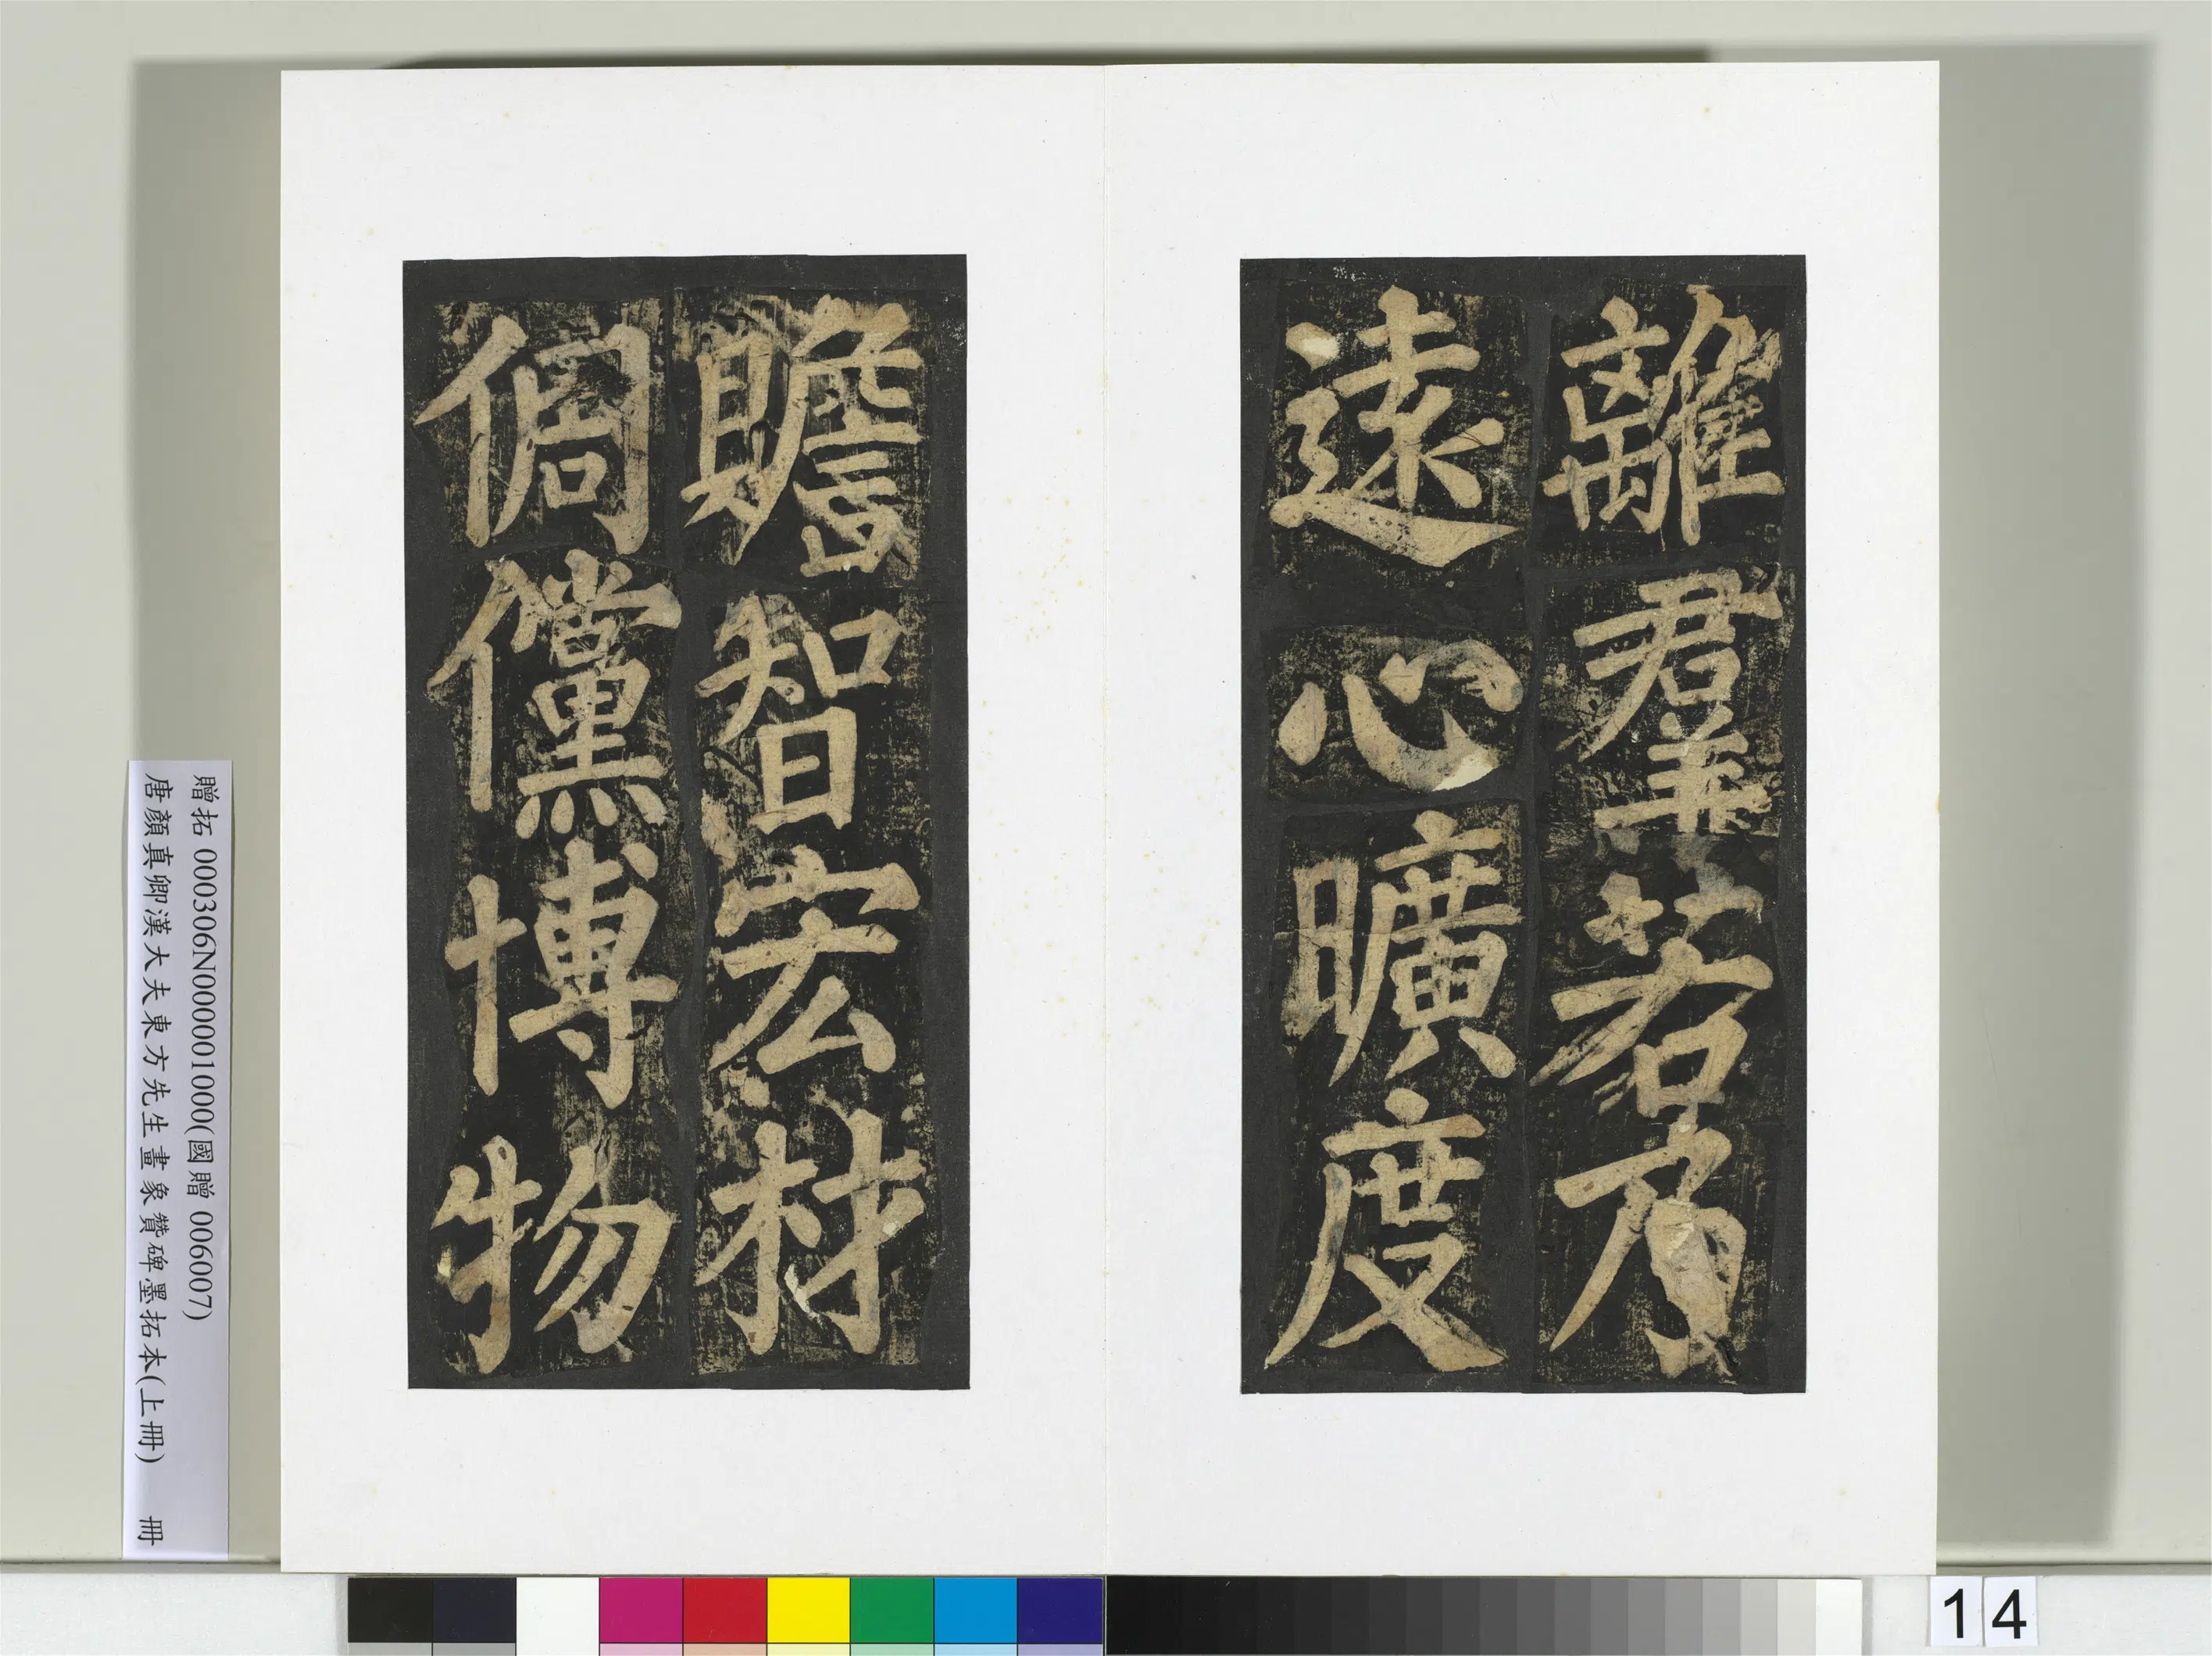 離羣若乃
遠心曠度
贍智宏材
倜儻博物
贈拓 000306N000001000(國贈 006007)
唐顏真卿漢大夫東方先生畫象贊碑墨拓本(上冊) 冊
14